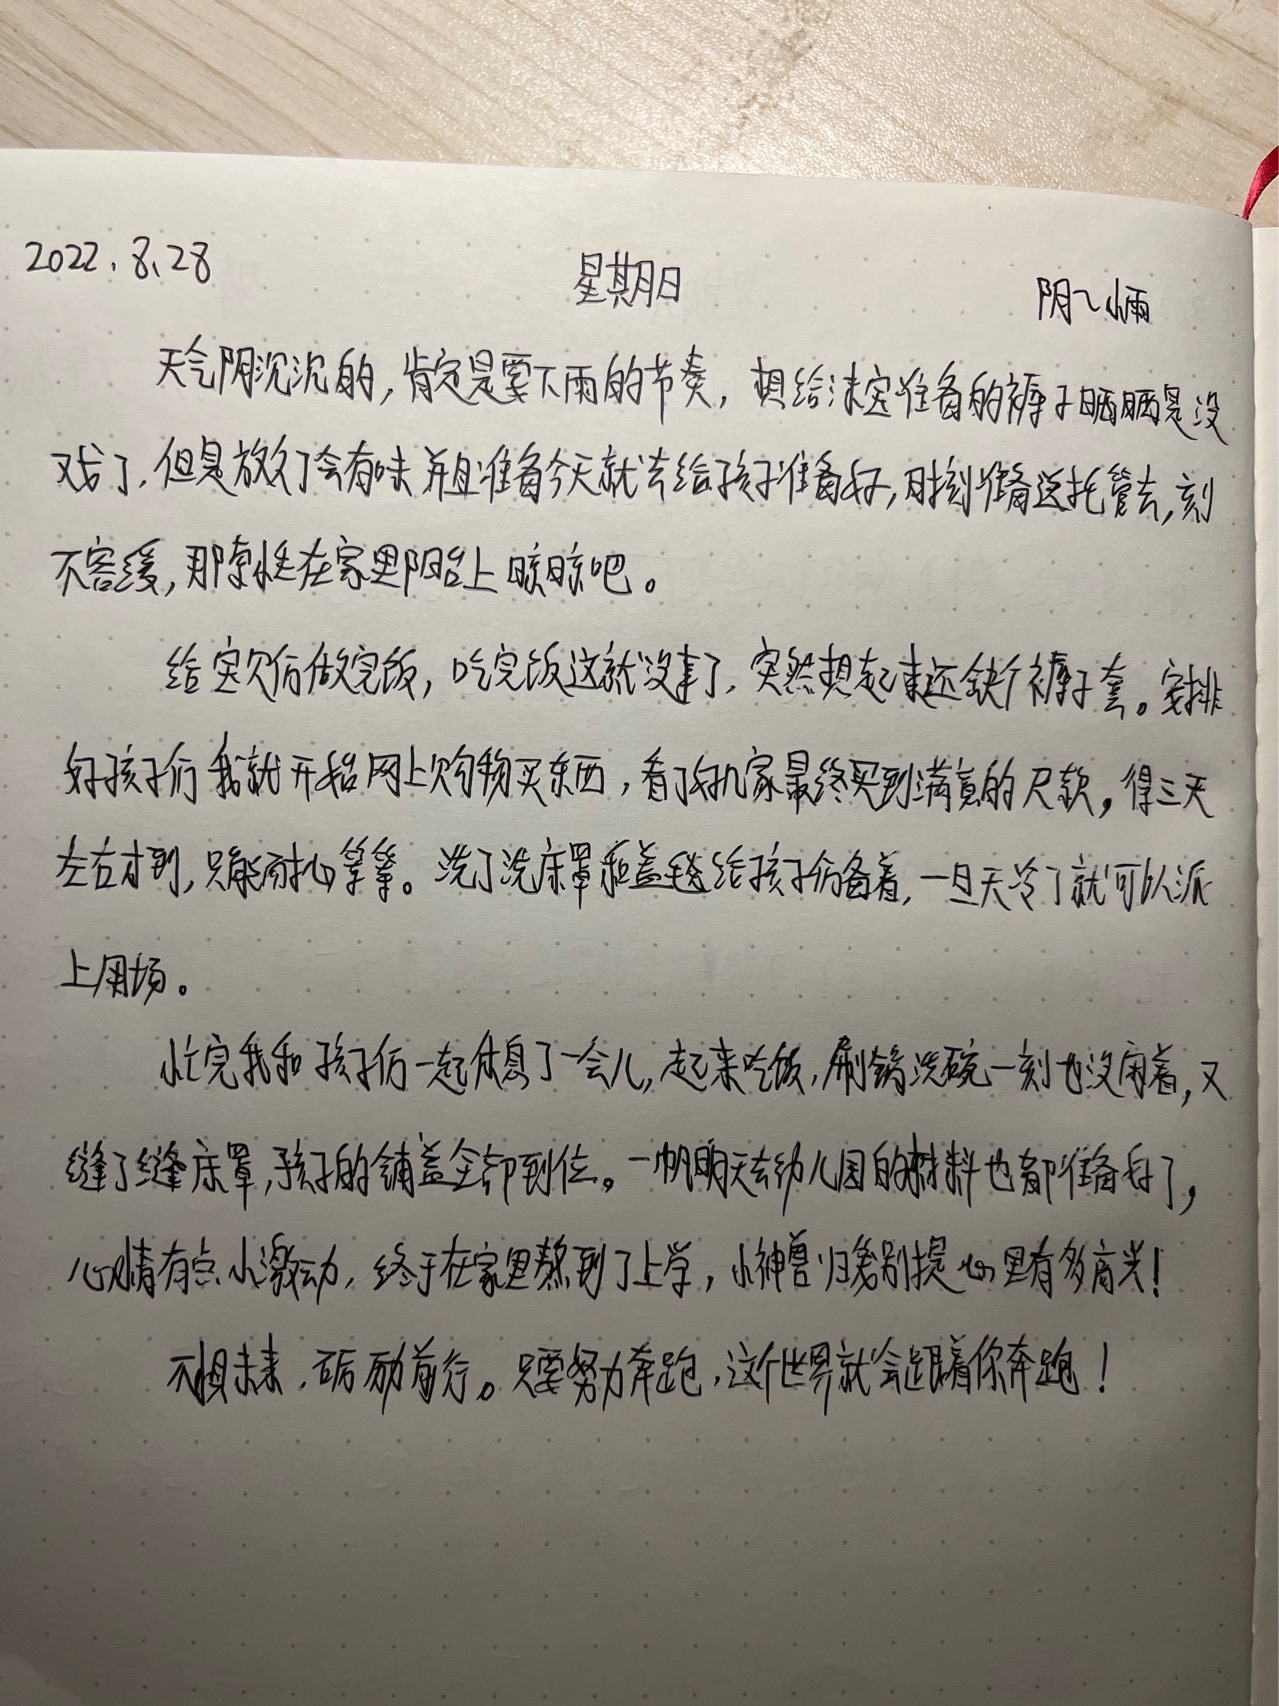 2022.8.28 星期日 阴~小雨
天气阴沉沉的,肯定是要下雨的节奏,想给沫宝准备的褥子晒晒是没
戏了,但是放久了会有味并且准备今天就去给孩子准备好,时刻准备送托管去,刻
不容缓,那索性在家里阳台上晾晾吧。
给宝贝们做完饭,吃完饭这就没事了,突然想起来还缺个褥子套。安排
好孩子们我就开始网上购物买东西,看了好几家最终买到满意的尺款,得三天
左右才到,只能耐心等等。洗了洗床罩和盖毯给孩子们备着,一旦天冷了就可以派
上用场。
忙完我和孩子们一起休息了一会儿,起来吃饭,刷锅洗碗一刻也没闲着,又
缝了缝床罩,孩子的铺盖全部到位。一帆明天去幼儿园的材料也都准备好了,
心情有点小激动,终于在家里熬到了上学,小神兽归笼别提心里有多高兴!
不惧未来,砥砺前行。只要努力奔跑,这个世界就会跟着你奔跑!